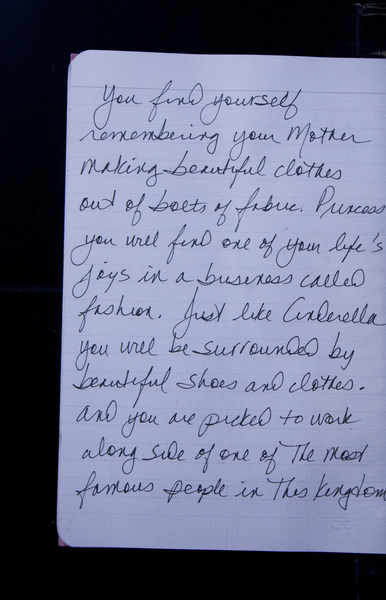 You find yourself
remembering your Mother
making beautiful clothes
out of bolts of fabric. Princess
you will find one of your life's
joys in a business called
fashion. Just like Cinderella
you will be surrounded by
beautiful shoes and clothes.
and you are picked to work
along side of one of The most
famous people in This kingdom